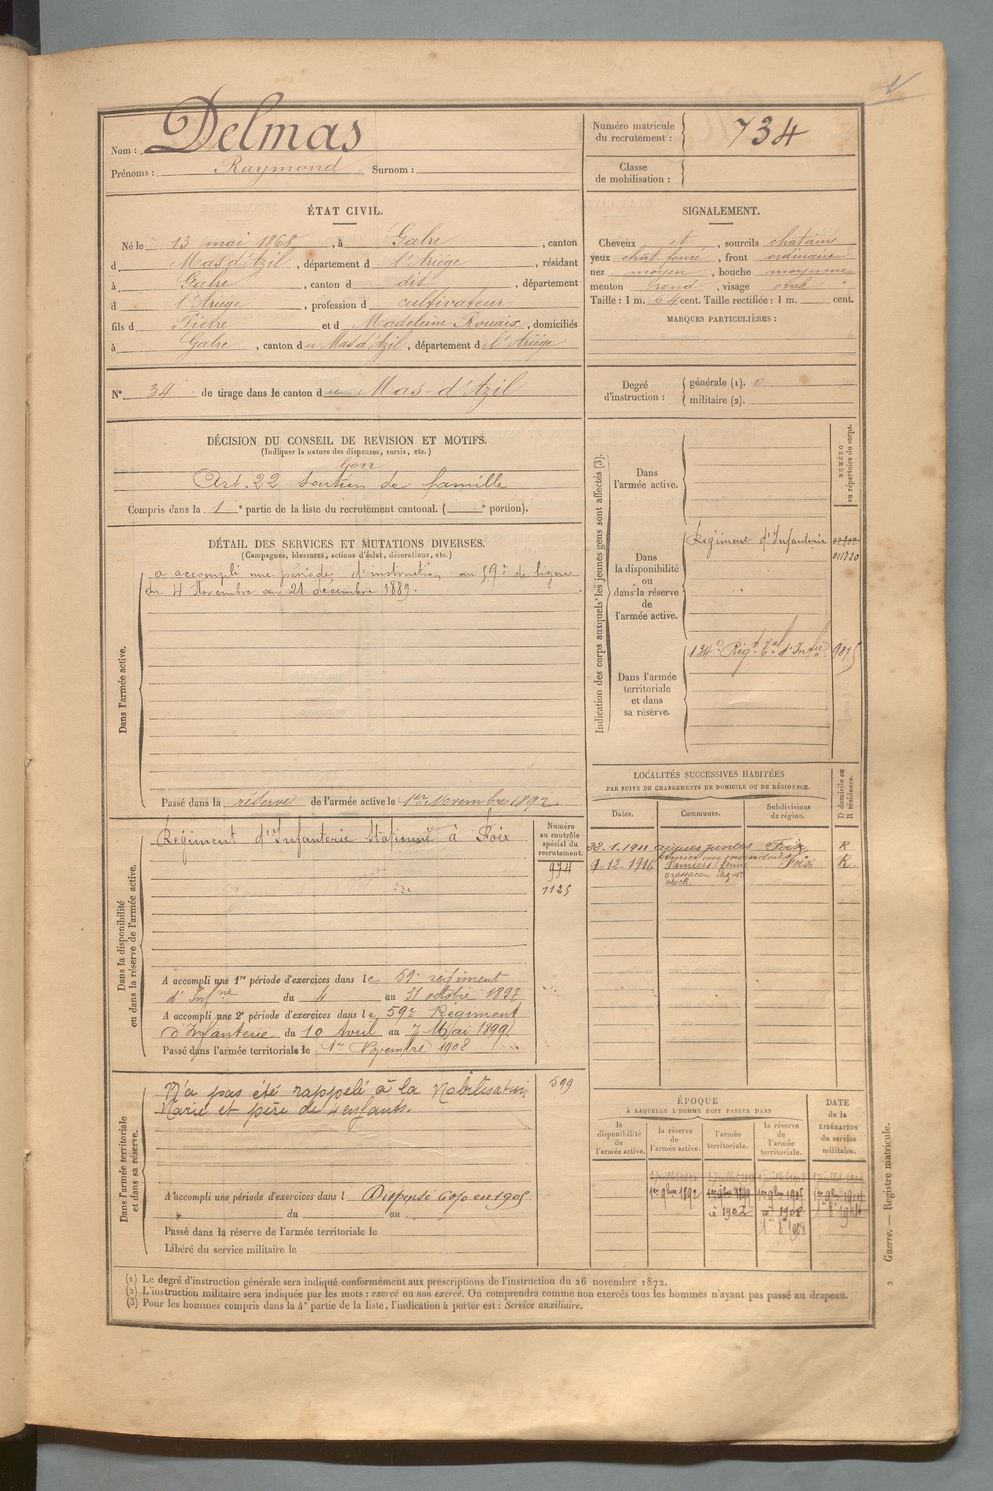 Nom : Delmas
Prénoms : Raymond Surnom :
Numéro matricule du recrutement : 734
Classe de mobilisation :
ÉTAT CIVIL.
Né le 13 mai 1868, à Gabre, canton
d Mas d'Azil, département d l'Ariège, résidant
à Gabre, canton d dit, département
d l'Ariège, profession d cultivateur
fils d Pierre et d Madeleine Rouaix, domiciliés
à Gabre, canton du Mas d'Azil, département d l'Ariège
N° 34 de tirage dans le canton du Mas-d'Azil
SIGNALEMENT.
Cheveux et, sourcils chatains
yeux chat foncé, front ordinaire
nez moyen, bouche moyenne
menton rond, visage oval
Taille : 1 m. 64 cent. Taille rectifiée : 1 m. cent.
MARQUES PARTICULIÈRES :
Degré d'instruction : générale (1). 0
militaire (2).
DÉCISION DU CONSEIL DE REVISION ET MOTIFS.
(Indiquer la nature des dispenses, sursis, etc.)
bon
Art. 22 soutien de famille
Compris dans la 1e partie de la liste du recrutement cantonal. ( e portion).
DÉTAIL DES SERVICES ET MUTATIONS DIVERSES.
(Campagnes, blessures, actions d'éclat, décorations, etc.)
Dans l'armée active.
a accompli une période d'instruction au 59e de ligne
du 4 Novembre au 21 décembre 1889.
Passé dans la réserve de l'armée active le 1er Novembre 1892.
Indication des corps auxquels les jeunes gens sont affectés (3).
NUMÉRO au répertoire du corps.
Dans l'armée active.
Dans la disponibilité ou dans la réserve de l'armée active.
Régiment d'Infanterie
011720
Dans l'armée territoriale et dans sa réserve.
134e Régt Tal d'Infie
LOCALITÉS SUCCESSIVES HABITÉES
PAR SUITE DE CHANGEMENTS DE DOMICILE OU DE RÉSIDENCE.
D domicile ou R résidence.
Dates. Communes. Subdivisions de région.
1911 aigues juntes Foix R
9-12-1916 Pamiers ferme Foix R
Dans la disponibilité ou dans la réserve de l'armée active.
Numéro au contrôle spécial du recrutement.
Régiment d'Infanterie Stationné à Foix
974
1125
A accompli une 1re période d'exercices dans le 59e régiment
d'Infrie du 4 au 31 octobre 1897
A accompli une 2e période d'exercices dans le 59e Régiment
d'Infanterie du 10 Avril au 7 Mai 1899.
Passé dans l'armée territoriale le 1er Novembre 1902
Dans l'armée territoriale et dans sa réserve.
599
N'a pas été rappelé à la Mobilisation.
Marié et père de 4 enfants.
A accompli une période d'exercices dans l Dispensé 60% en 1905
du au
Passé dans la réserve de l'armée territoriale le
Libéré du service militaire le
ÉPOQUE
À LAQUELLE L'HOMME DOIT PASSER DANS
la disponibilité de l'armée active.
la réserve de l'armée active.
l'armée territoriale.
la réserve de l'armée territoriale.
DATE de la LIBÉRATION du service militaire.
1er 9bre 1892
1902
1908
Guerre. — Registre matricule.
(1) Le degré d'instruction générale sera indiqué conformément aux prescriptions de l'instruction du 26 novembre 1872.
(2) L'instruction militaire sera indiquée par les mots : exercé ou non exercé. On comprendra comme non exercés tous les hommes n'ayant pas passé au drapeau.
(3) Pour les hommes compris dans la 4e partie de la liste, l'indication à porter est : Service auxiliaire.